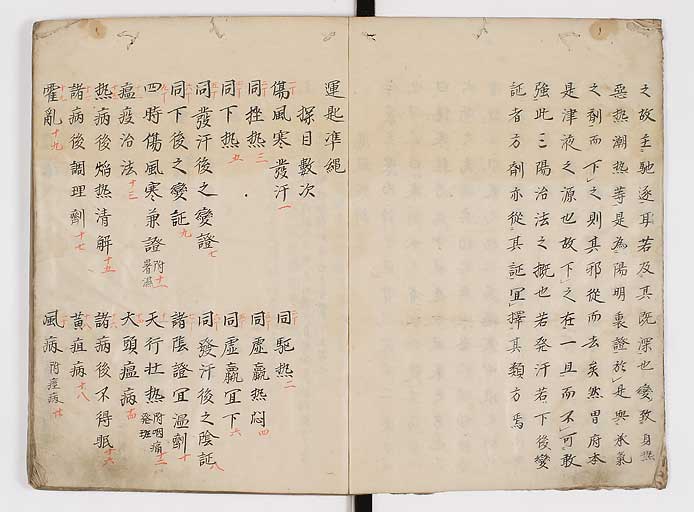 之故主馳逐耳若及其既深也變致身熱
惡熱潮熱等是為陽明裏證於是與承氣
之劑而下之則其邪從而去矣然胃府本
是津液之源也故下之在一旦而不可敢
強此三陽治法之概也若発汗若下後変
証者方劑亦從其証宜擇其類方焉
運匙準繩
探目數次
傷風寒發汗 一
同馳熱 二
同挫熱 三
同虛羸熱悶 四
同下熱 五
同虛羸宜下 六
同發汗後之變證 七
同發汗後之陰証 八
同下後之變証 九
諸陰證宜溫劑 十
四時傷風寒兼證 附暑濕 十一
天行壯熱 附咽痛発斑 十二
瘟疫治法 十三
大頭瘟病 十四
熱病後焰熱清解 十五
諸病後不得眠 十六
諸病後調理劑 十七
黃疸病 十八
霍亂 十九
風病 附痙病 廿